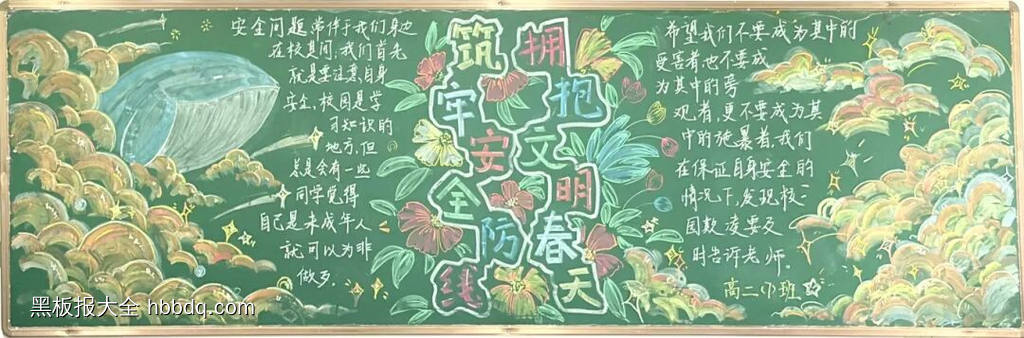 安全问题常伴于我们身边
在校其间,我们首先
就是要注意自身
安全,校园是学
习知识的
地方,但
总是会有一些
同学觉得
自己是未成年人
就可以为非
做歹。
筑牢安全防线
拥抱文明春天
希望我们不要成为其中的
受害者也不要成
为其中的旁
观者,更不要成为其
中的施暴者,我们
在保证自身安全的
情况下,发现校
园欺凌要及
时告诉老师。
高二 班
黑板报大全 hbbdq.com